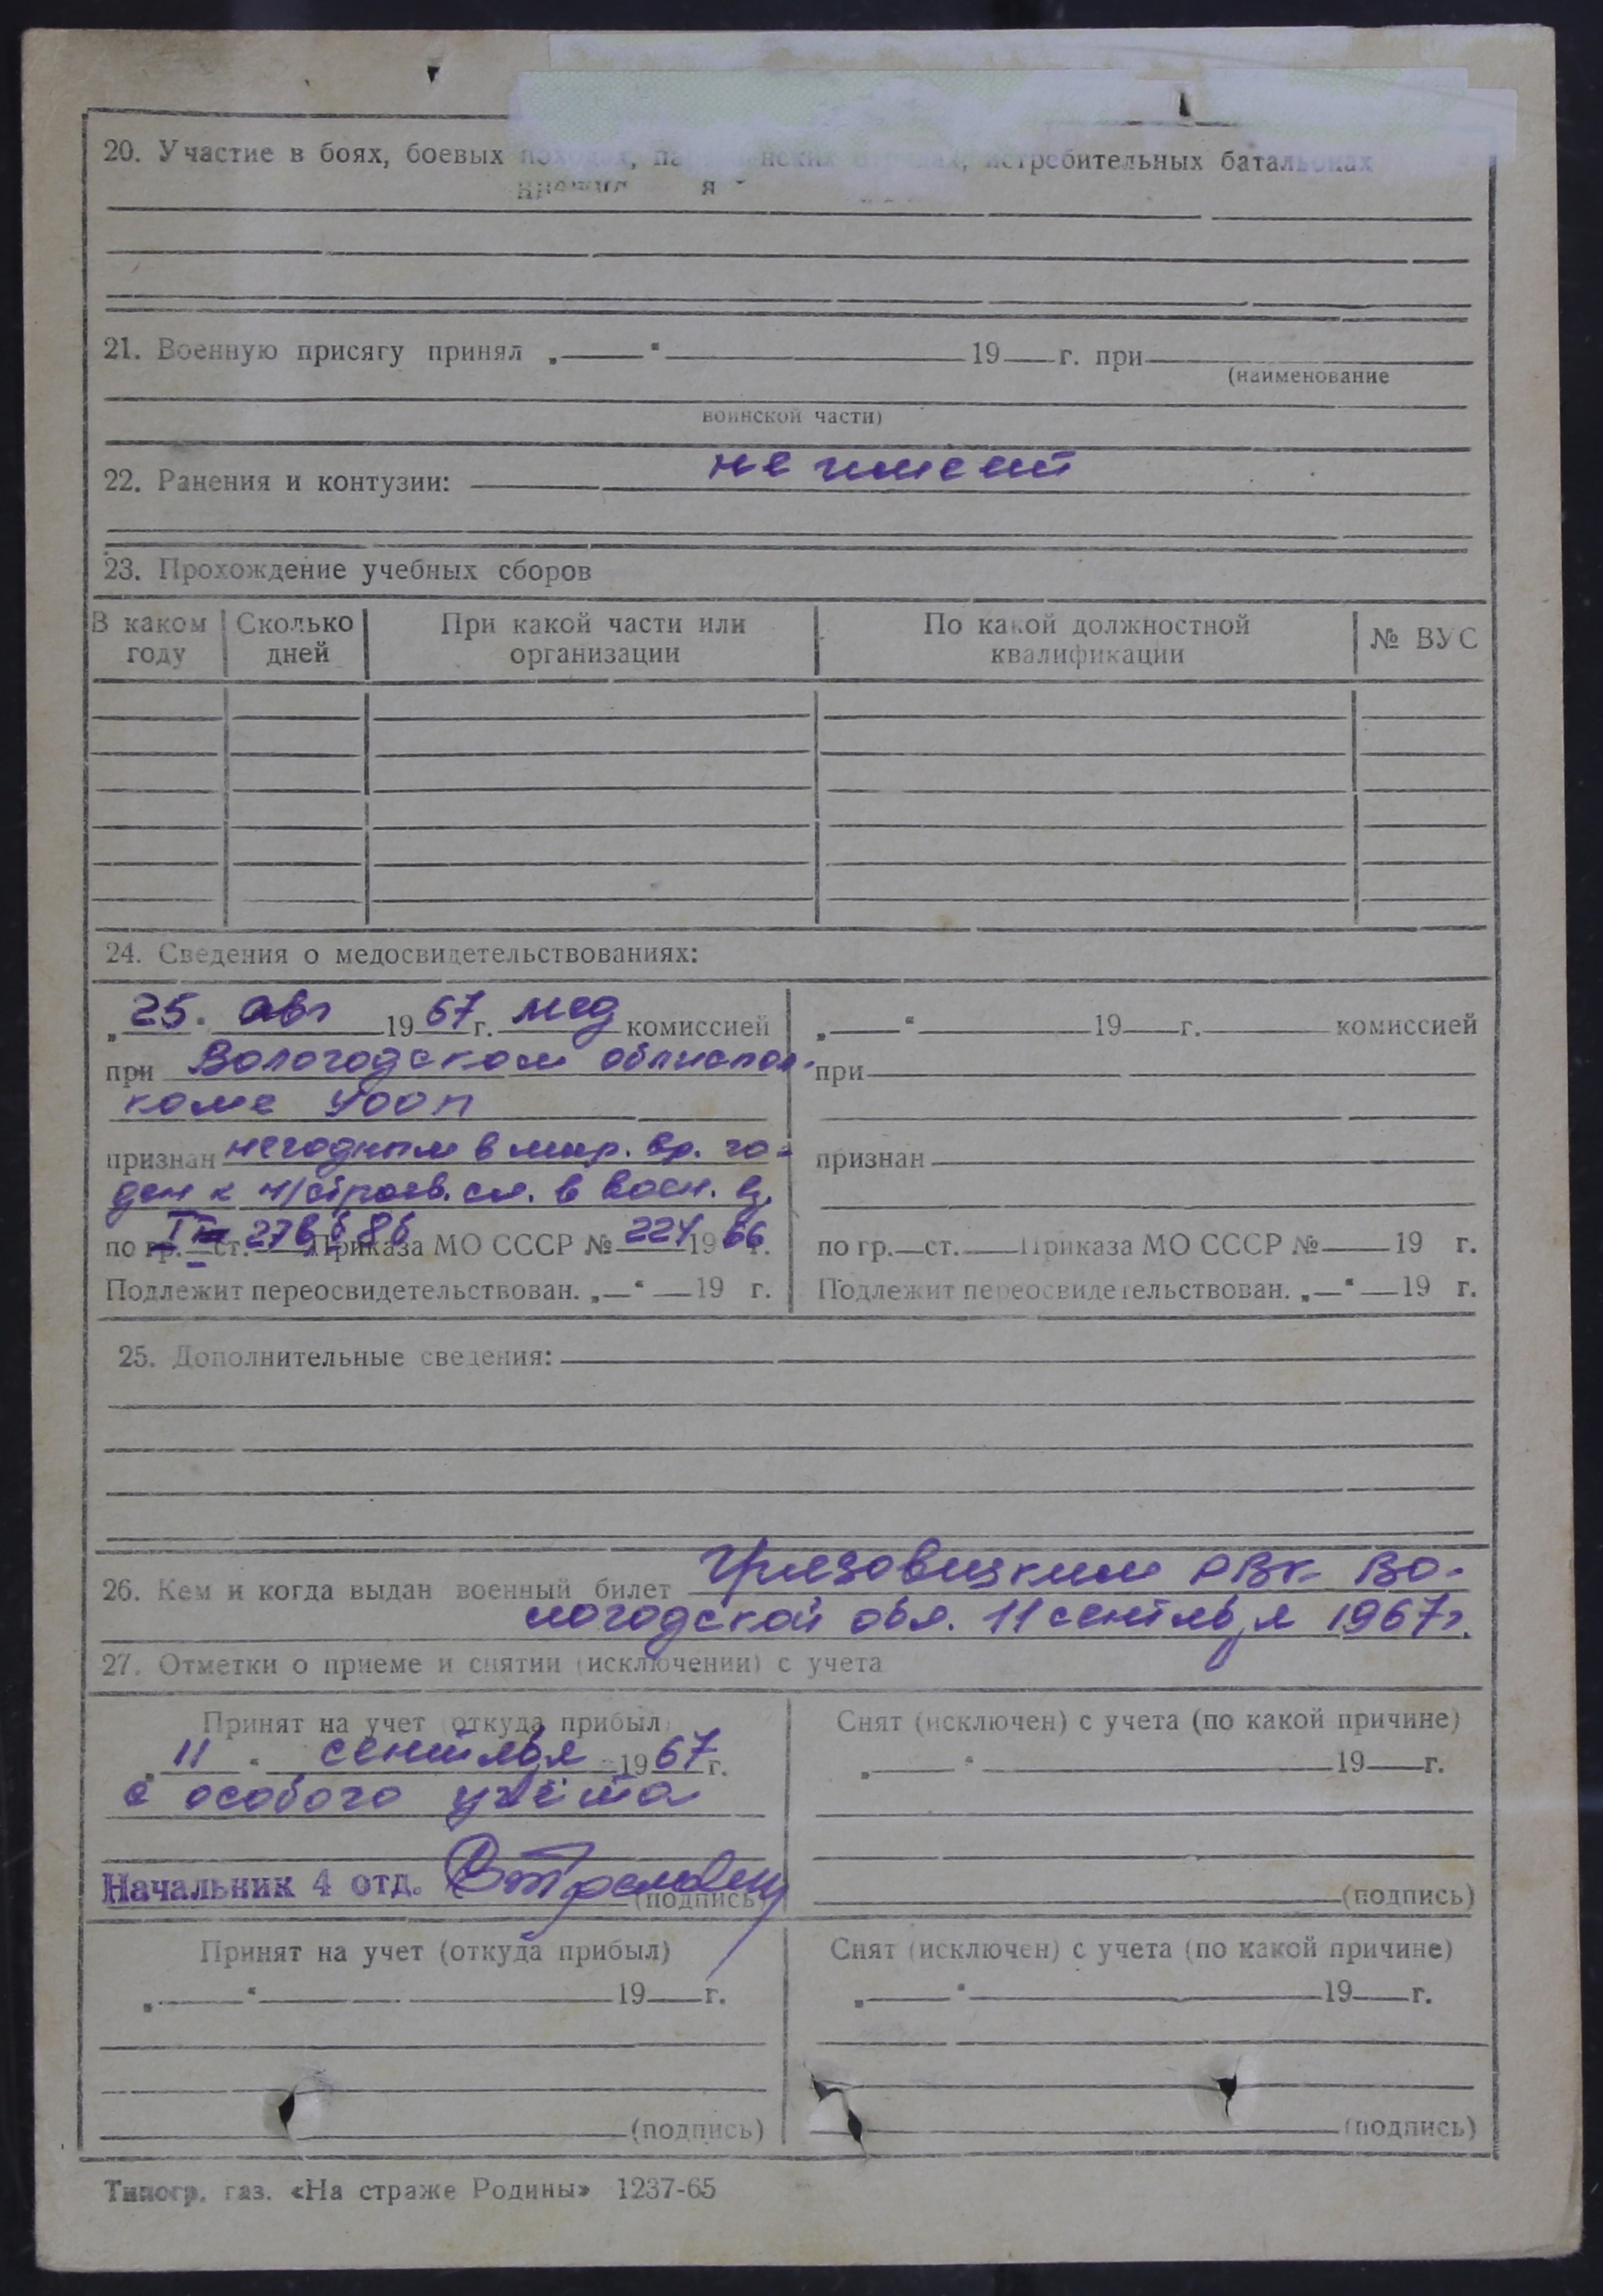 20. Участие в боях, боевых походах, истребительных батальонах
21. Военную присягу принял „ “ 19 г. при
(наименование
воинской части)
22. Ранения и контузии: не имеет
23. Прохождение учебных сборов
В каком году Сколько дней При какой части или организации По какой должностной квалификации № ВУС
24. Сведения о медосвидетельствованиях:
„25. авг 1967 г. мед комиссией
при Вологодском облиспол-
коме УООП
признан негодным в мир. вр. го-
ден к н/строев. сл. в воен. вр.
по гр. ст. Приказа МО СССР № 224 1966 г.
Подлежит переосвидетельствован. „ “ 19 г.
„ “ 19 г. комиссией
при
признан
по гр. ст. Приказа МО СССР № 19 г.
Подлежит переосвидетельствован. „ “ 19 г.
25. Дополнительные сведения:
26. Кем и когда выдан военный билет Грязовецким РВК Во-
логодской обл. 11 сентября 1967 г.
27. Отметки о приеме и снятии (исключении) с учета
Принят на учет (откуда прибыл)
„11 “ сентября 1967 г.
с особого учёта
Начальник 4 отд.
(подпись)
Снят (исключен) с учета (по какой причине)
„ “ 19 г.
(подпись)
Принят на учет (откуда прибыл)
„ “ 19 г.
(подпись)
Снят (исключен) с учета (по какой причине)
„ “ 19 г.
(подпись)
Типогр. газ. «На страже Родины» 1237-65